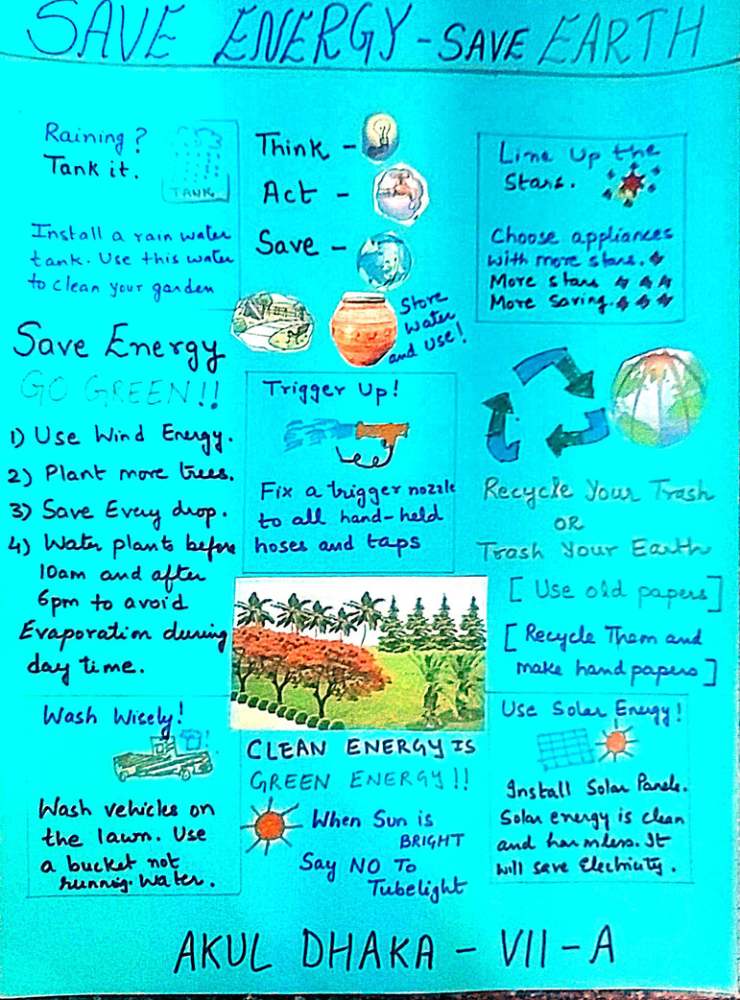 SAVE ENERGY - SAVE EARTH
Raining?
Tank it.
TANK
Install a rain water
tank. Use this water
to clean your garden
Think -
Act -
Save -
Store
Water
and Use!
Line Up the
Stars.
Choose appliances
with more stars.
More stars
More Saving.
Save Energy
GO GREEN!!
1) Use Wind Energy.
2) Plant more trees.
3) Save Every drop.
4) Water plants before
10am and after
6pm to avoid
Evaporation during
day time.
Trigger Up!
Fix a trigger nozzle
to all hand-held
hoses and taps
Recycle Your Trash
OR
Trash Your Earth
[ Use old papers ]
[ Recycle Them and
make hand papers ]
Wash Wisely!
Wash vehicles on
the lawn. Use
a bucket not
running water.
CLEAN ENERGY IS
GREEN ENERGY!!
When Sun is
BRIGHT
Say NO To
Tubelight
Use Solar Energy!
Install Solar Panels.
Solar energy is clean
and harmless. It
will save Electricity.
AKUL DHAKA - VII - A